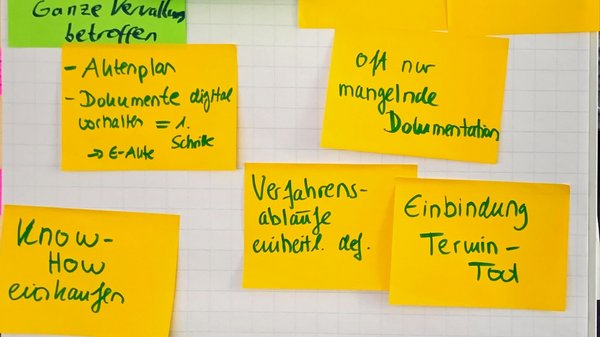 Ganze Verwaltung
betroffen
- Aktenplan
- Dokumente digital
vorhalten = 1.
Schritt
→ E-Akte
Oft nur
mangelnde
Dokumentation
Verfahrens-
abläufe
einheitl. def.
Einbindung
Termin-
Tool
Know-
How
einkaufen